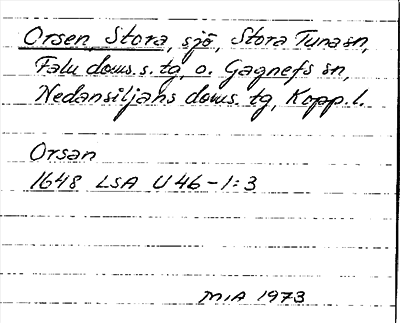 Orsen, Stora, sjö, Stora Tuna sn,
Falu doms.s. tg, o. Gagnefs sn,
Nedansiljans doms. tg, Kopp. l.
Orsan
1648 LSA U46-1:3
MIA 1973